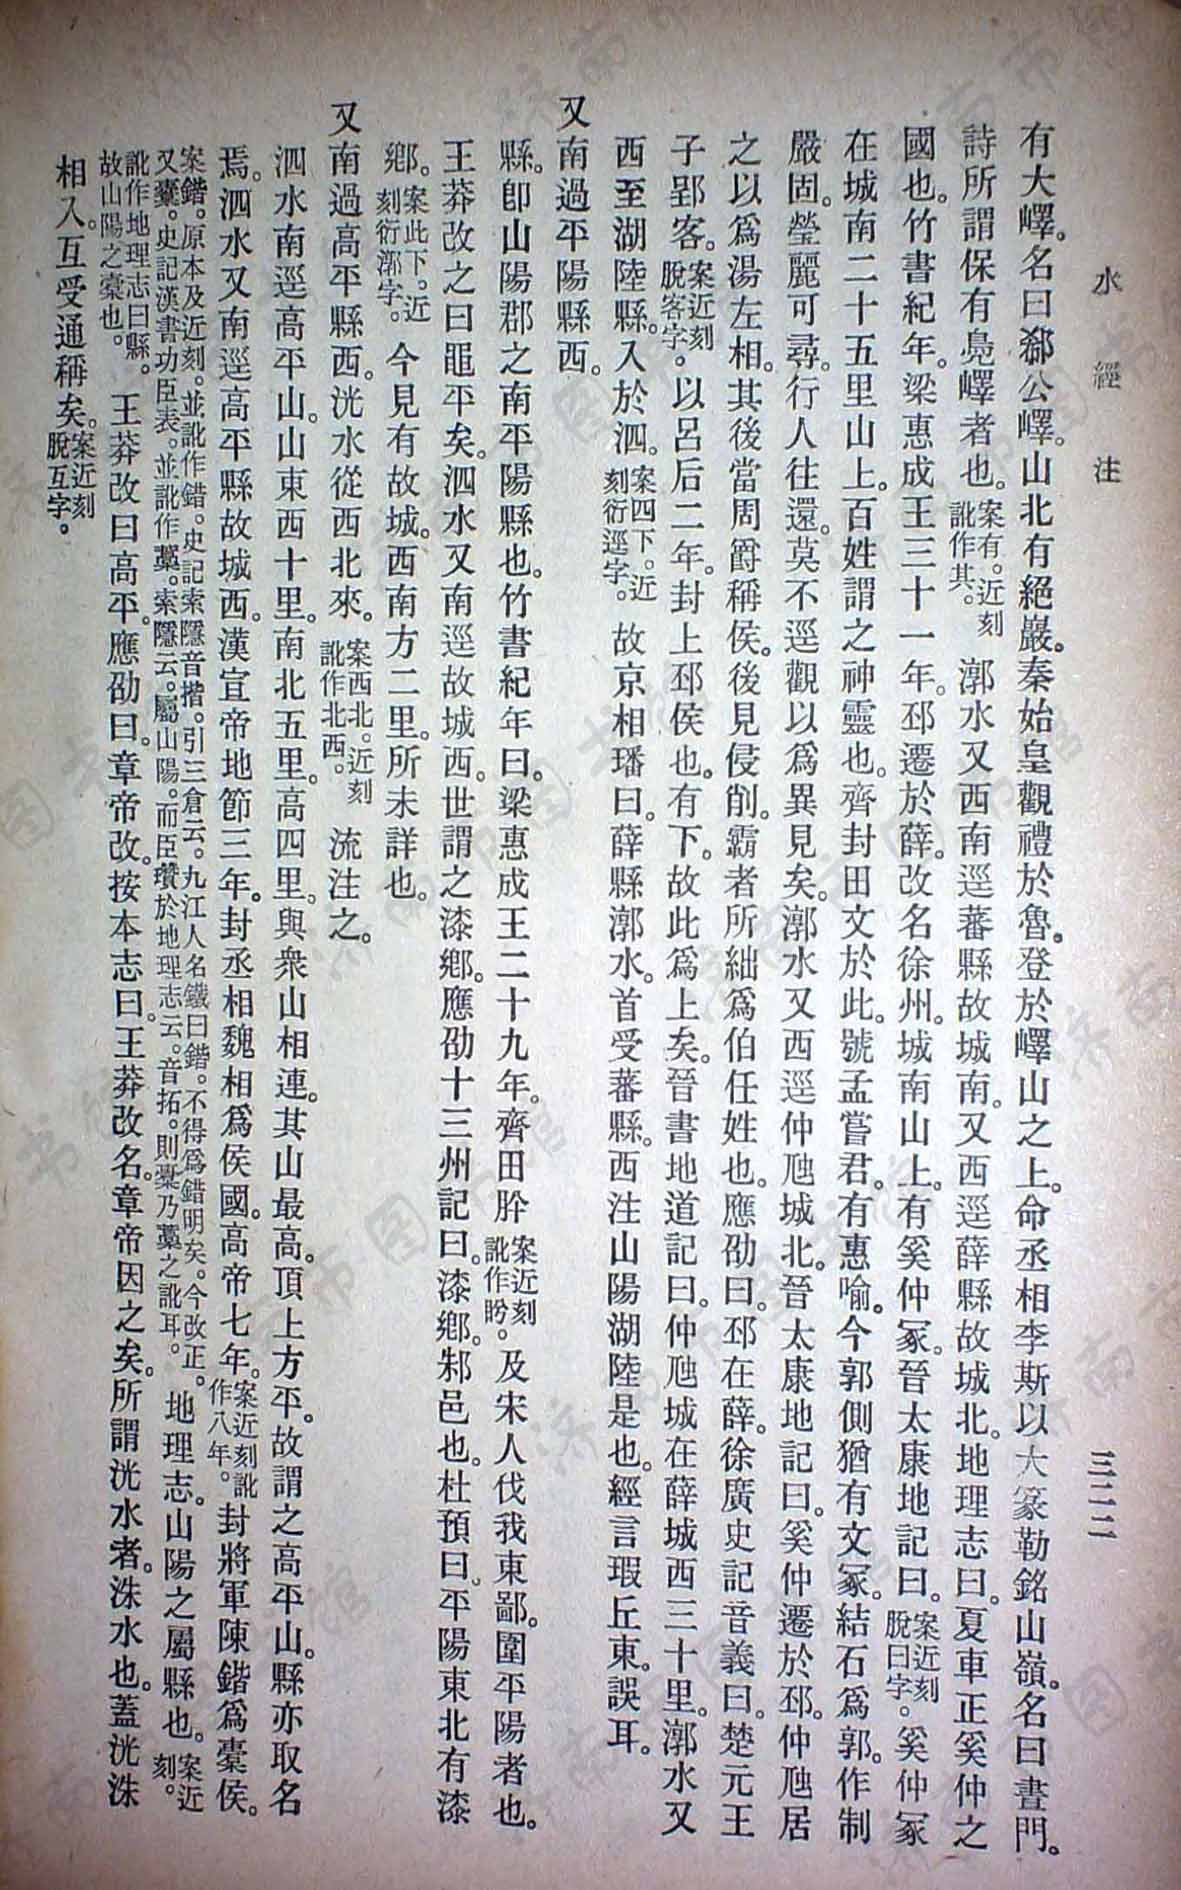 水經注
三二二
有大嶧。名曰郗公嶧。山北有絕巖。秦始皇觀禮於魯。登於嶧山之上。命丞相李斯以大篆勒銘山嶺。名曰晝門。
詩所謂保有鳧嶧者也。案有。近刻訛作其。漷水又西南逕蕃縣故城南。又西逕薛縣故城北。地理志曰。夏車正奚仲之
國也。竹書紀年。梁惠成王三十一年。邳遷於薛。改名徐州。城南山上。有奚仲冢。晉太康地記曰。案近刻脫曰字。奚仲冢
在城南二十五里山上。百姓謂之神靈也。齊封田文於此。號孟嘗君。有惠喻。今郭側猶有文冢。結石爲郭。作制
嚴固。瑩麗可尋。行人往還。莫不逕觀以爲異見矣。漷水又西逕仲虺城北。晉太康地記曰。奚仲遷於邳。仲虺居
之以爲湯左相。其後當周爵稱侯。後見侵削。霸者所絀爲伯任姓也。應劭曰。邳在薛。徐廣史記音義曰。楚元王
子郢客。案近刻脫客字。以呂后二年。封上邳侯也。有下。故此爲上矣。晉書地道記曰。仲虺城在薛城西三十里。漷水又
西至湖陸縣。入於泗。案四下。近刻衍逕字。故京相璠曰。薛縣漷水。首受蕃縣。西注山陽湖陸是也。經言瑕丘東。誤耳。
又南過平陽縣西。
縣。卽山陽郡之南平陽縣也。竹書紀年曰。梁惠成王二十九年。齊田肸案近刻訛作盻。及宋人伐我東鄙。圍平陽者也。
王莽改之曰黽平矣。泗水又南逕故城西。世謂之漆鄉。應劭十三州記曰。漆鄉。邾邑也。杜預曰。平陽東北有漆
鄉。案此下。近刻衍漷字。今見有故城。西南方二里。所未詳也。
又南過高平縣西。洸水從西北來。案西北。近刻訛作北西。流注之。
泗水南逕高平山。山東西十里。南北五里。高四里。與衆山相連。其山最高。頂上方平。故謂之高平山。縣亦取名
焉。泗水又南逕高平縣故城西。漢宣帝地節三年。封丞相魏相爲侯國。高帝七年。案近刻訛作八年。封將軍陳鍇爲橐侯。
案鍇。原本及近刻。並訛作錯。史記索隱音揩。引三倉云。九江人名鐵曰鍇。不得爲錯明矣。今改正。
又橐。史記漢書功臣表。並訛作藁。索隱云。屬山陽。而臣瓚於地理志云。音拓。則橐乃藁之訛耳。地理志。山陽之屬縣也。案近刻。
訛作地理志曰縣。故山陽之橐也。王莽改曰高平。應劭曰。章帝改。按本志曰。王莽改名。章帝因之矣。所謂洸水者。洙水也。蓋洸洙
相入。互受通稱矣。案近刻脫互字。